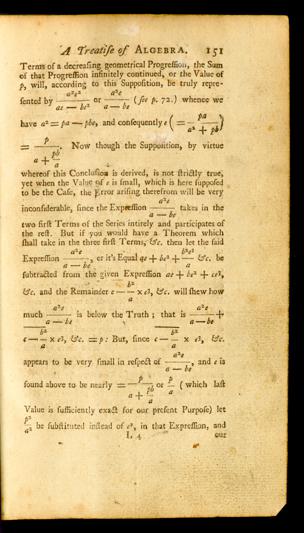 A Treatise of ALGEBRA. 151
Terms of a decreasing geometrical Progression, the Sum
of that Progression infinitely continued, or the Value of
p, will, according to this Supposition, be truly repre-
sented by a²e²/(ae — be²) or a²e/(a — be) (see p. 72.) whence we
have a²e = pa — pbe, and consequently e ( = pa/(a² + pb) )
= p/(a + pb/a). Now though the Supposition, by virtue
whereof this Conclusion is derived, is not strictly true,
yet when the Value of e is small, which is here supposed
to be the Case, the Error arising therefrom will be very
inconsiderable, since the Expression a²e/(a — be) takes in the
two first Terms of the Series intirely and participates of
the rest. But if you would have a Theorem which
shall take in the three first Terms, &c. then let the said
Expression a²e/(a — be), or it's Equal ae + be² + b²e³/a &c. be
subtracted from the given Expression ae + be² + ce³,
&c. and the Remainder c — b²/a × e³, &c. will shew how
much a²e/(a — be) is below the Truth; that is a²e/(a — be) +
c — b²/a × e³, &c. = p: But, since c — b²/a × e³, &c.
appears to be very small in respect of a²e/(a — be), and e is
found above to be nearly = p/(a + pb/a) or p/a (which last
Value is sufficiently exact for our present Purpose) let
p²/a² be substituted instead of e², in that Expression, and
L 4 our